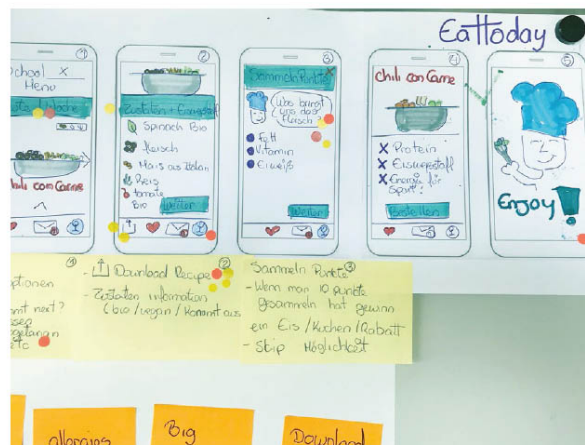 EatToday
①
School X
Menu
Chili con Carne
②
Zutaten + Eiweißstoff
Spinach Bio
fleisch
Mais aus Italien
Reis
tomate
Bio
Weiter
③
Sammeln Punkte
Was bringt
uns das
Fleisch?
Fett
Vitamin
Eiweiß
Weiter
④
Chili con Carne
X Protein
X Eisenerstoff
X Energie für
Sport!
Bestellen
⑤
Enjoy!
①
ptionen
mt next?
ssen
etc
②
- Download Recipe
- Zutaten information
( bio / vegan / kommt aus
Sammeln Punkte ③
- Wenn man 10 punkte
gesammeln hat gewinn
ein Eis / Kuchen / Rabatt
- Skip Möglichkeit
allergins
Big
Download